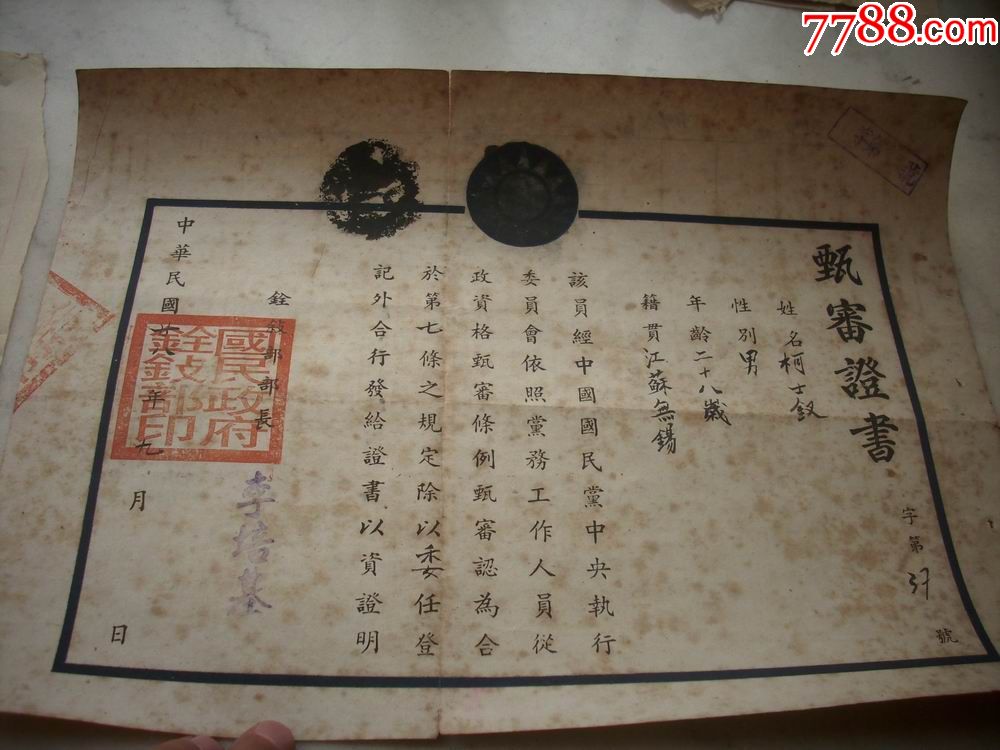 7788.com
甄審證書
字第37號
姓名柯士釵
性別男
年齡二十八歲
籍貫江蘇無錫
該員經中國國民黨中央執行
委員會依照黨務工作人員從
政資格甄審條例甄審認為合
於第七條之規定除以委任登
記外合行發給證書以資證明
銓敍部部長
李培基
國民政府
銓敍部印
中華民國廿八年九月 日